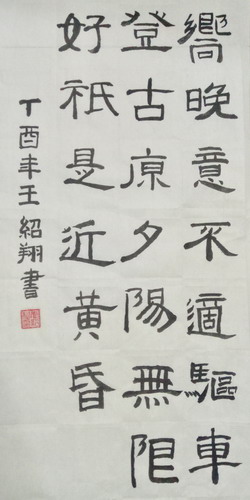 嚮晚意不適驅車
登古原夕陽無限
好祇是近黃昏
丁酉年王紹翔書